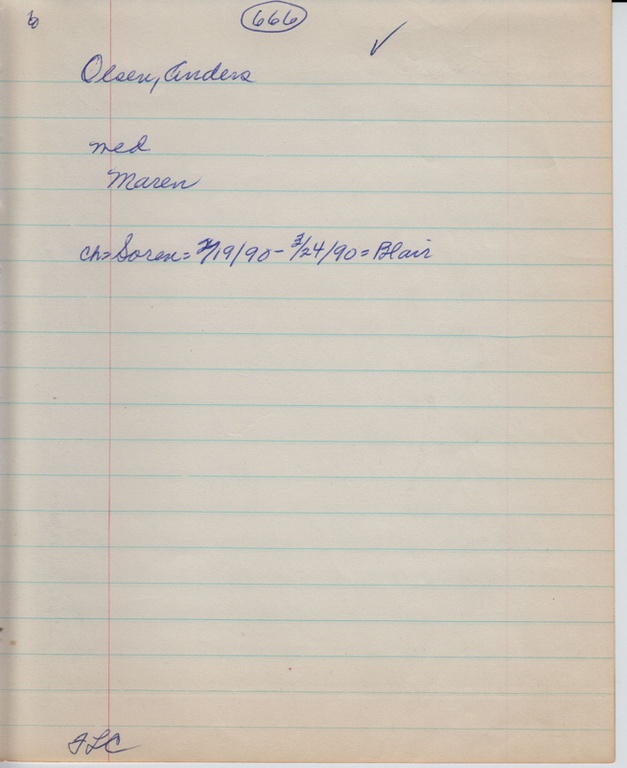 666
Olsen, Anders
med
Maren
ch=Soren= 2/19/90 - 3/24/90 = Blair
FLC